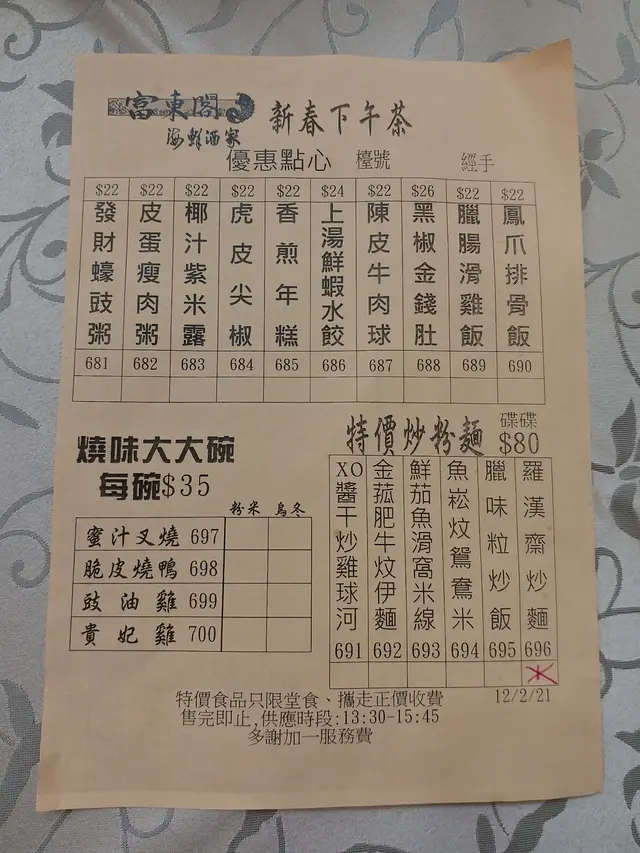 富東閣
海鮮酒家
新春下午茶
優惠點心 檯號 經手
$22 $22 $22 $22 $22 $24 $22 $26 $22 $22
發財蠔豉粥
皮蛋瘦肉粥
椰汁紫米露
虎皮尖椒
香煎年糕
上湯鮮蝦水餃
陳皮牛肉球
黑椒金錢肚
臘腸滑雞飯
鳳爪排骨飯
681 682 683 684 685 686 687 688 689 690
燒味大大碗
每碗$35
粉米 烏冬
蜜汁叉燒 697
脆皮燒鴨 698
豉油雞 699
貴妃雞 700
特價炒粉麵 碟碟$80
XO醬干炒雞球河
金菰肥牛炆伊麵
鮮茄魚滑窩米線
魚崧炆鴛鴦米
臘味粒炒飯
羅漢齋炒麵
691 692 693 694 695 696
特價食品只限堂食、攜走正價收費 12/2/21
售完即止,供應時段:13:30-15:45
多謝加一服務費